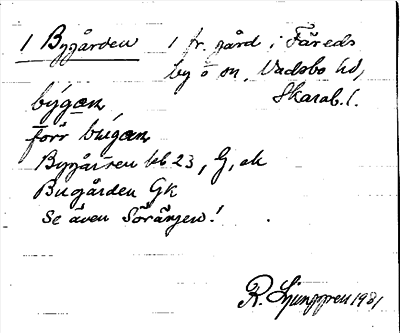 1 Bygården 1 fr. gård i Färeds
by o sn, Vadsbo hd,
Skarab. l.
by̍gaɳ
förr bugaɳ
Bygår'n eb 23, G, ek
Bugården Gk
Se även Sörängen!
R. Ljunggren 1981